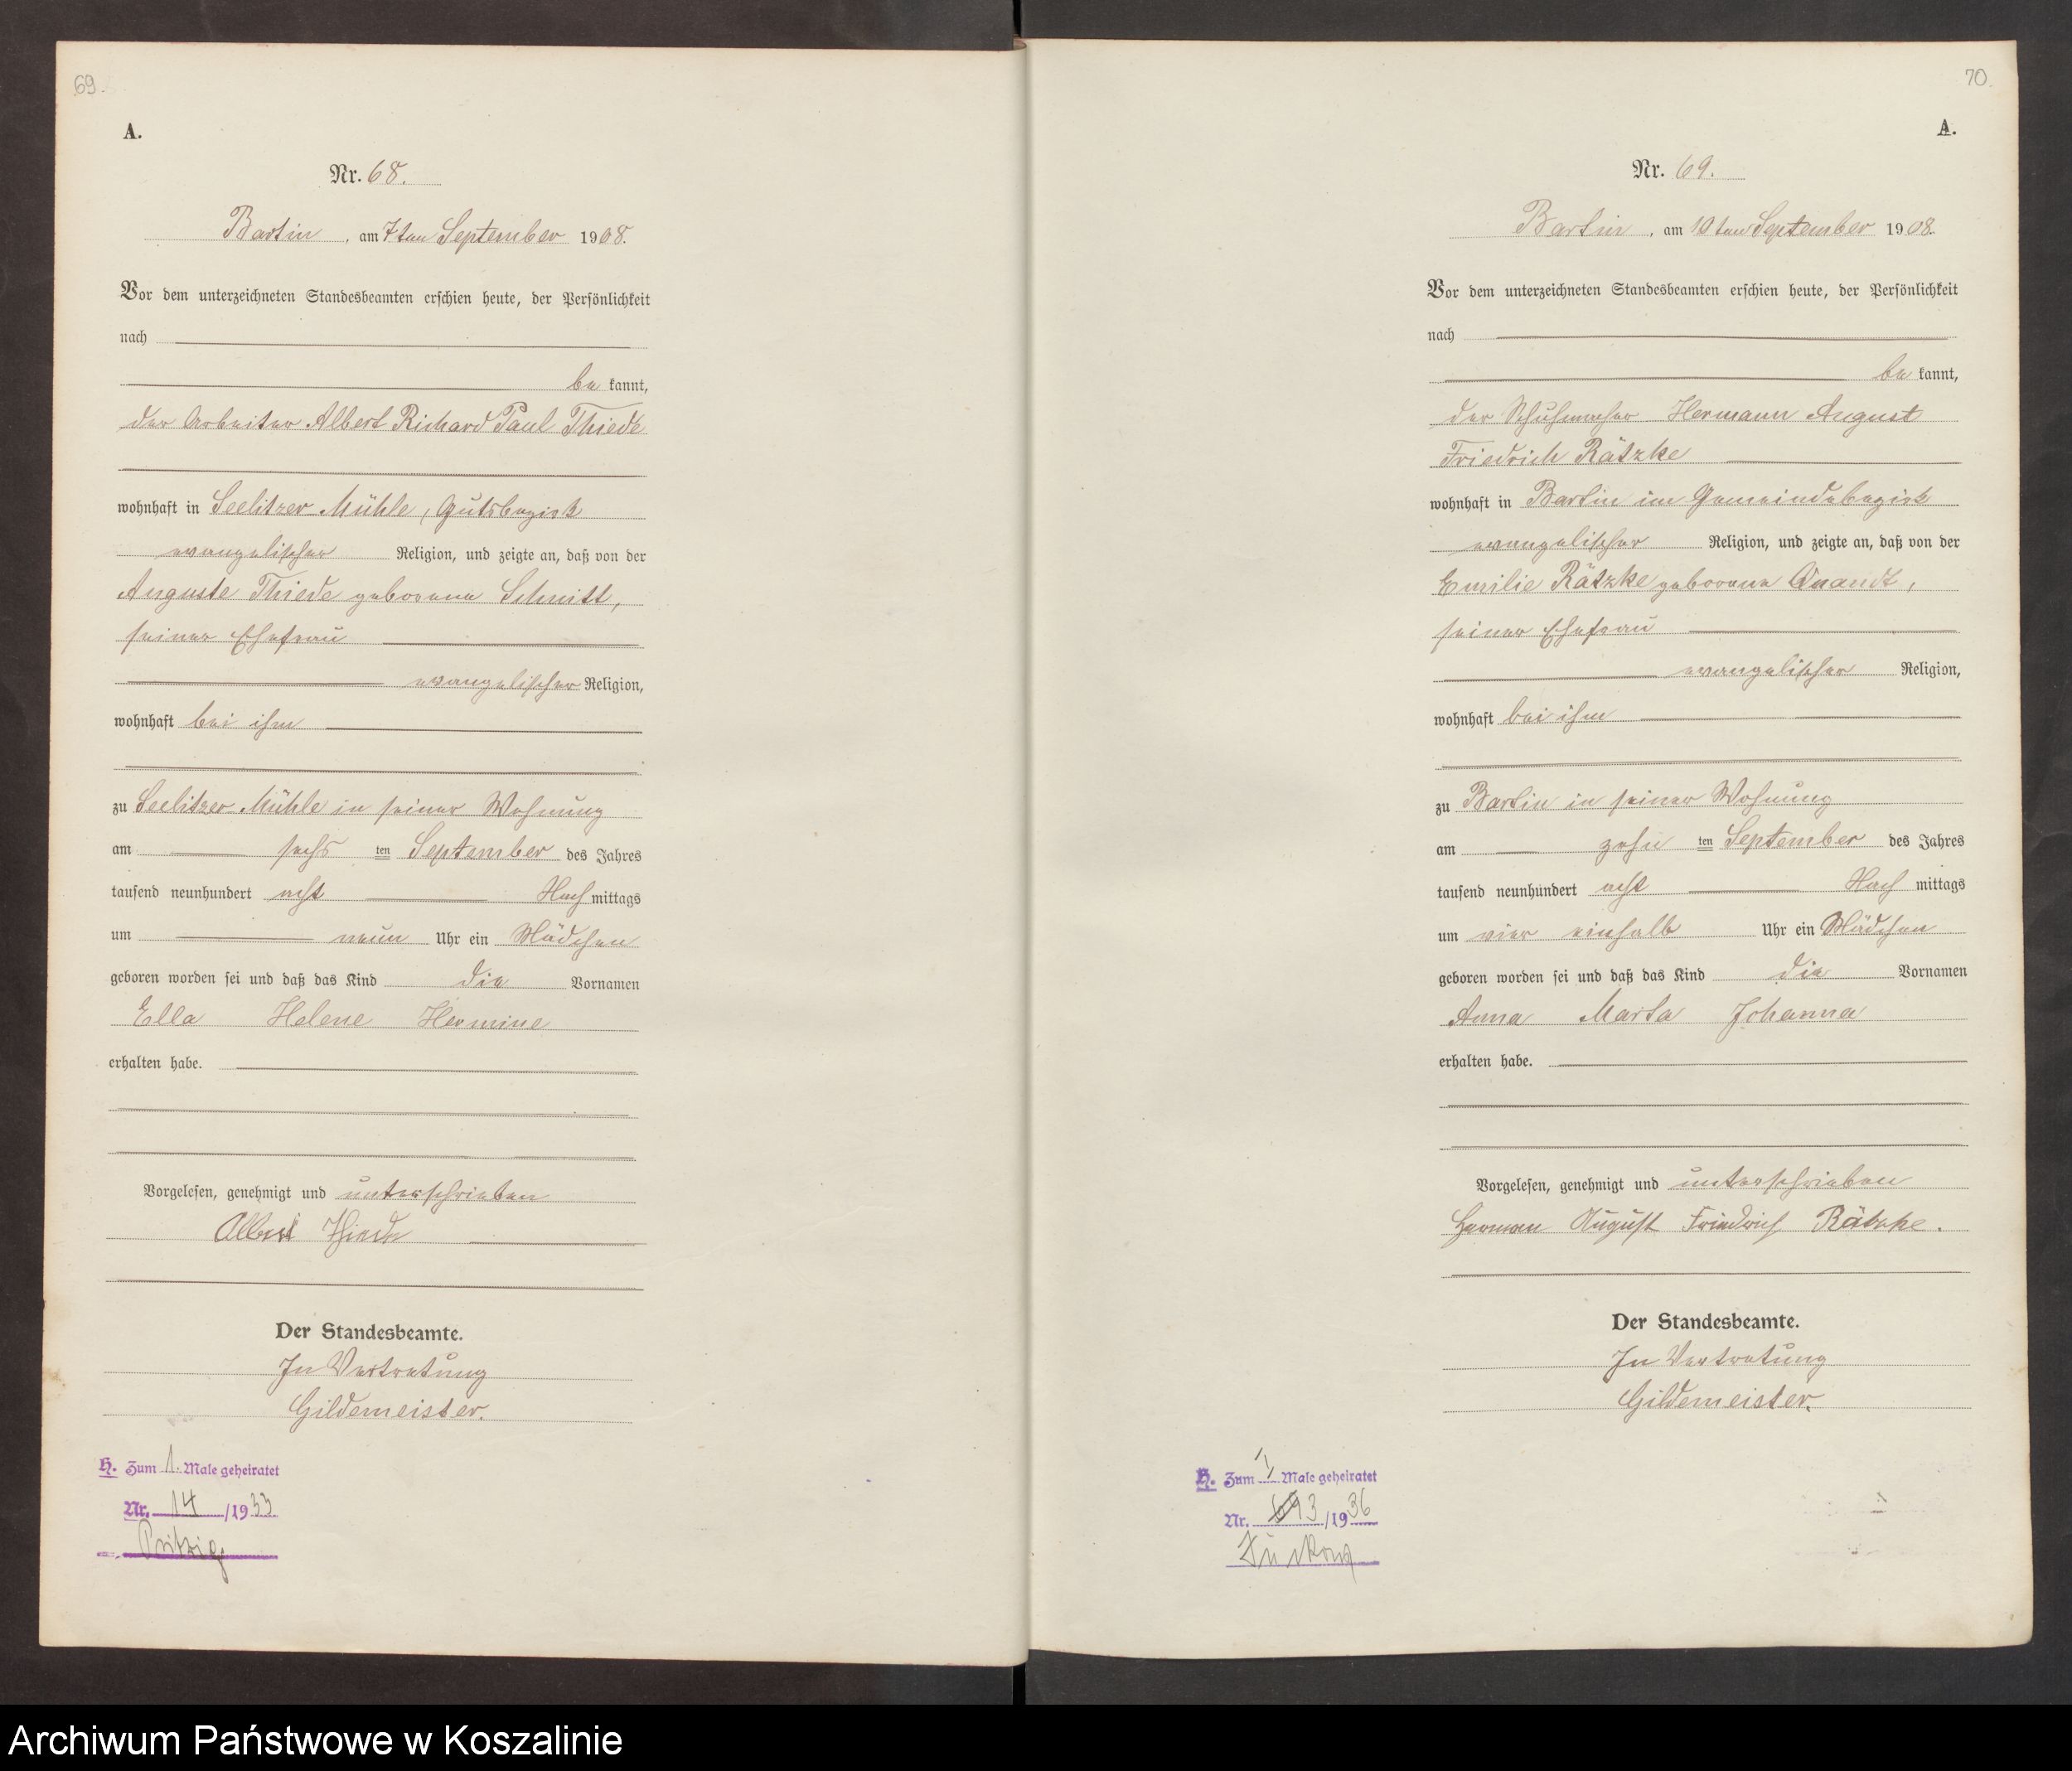 69.
A.
Nr. 68.
Bartin, am 7ten September 1908.
Vor dem unterzeichneten Standesbeamten erschien heute, der Persönlichkeit
nach
be kannt,
der Arbeiter Albert Richard Paul Thiede
wohnhaft in Seelitzer Mühle, Gutsbezirk
evangelischer Religion, und zeigte an, daß von der
Auguste Thiede geborene Schmitt,
seiner Ehefrau
evangelischer Religion,
wohnhaft bei ihm
zu Seelitzer Mühle in seiner Wohnung
am sechs ten September des Jahres
tausend neunhundert acht Nach mittags
um neun Uhr ein Mädchen
geboren worden sei und daß das Kind die Vornamen
Ella Helene Hermine
erhalten habe.
Vorgelesen, genehmigt und unterschrieben
Albert Thiede
Der Standesbeamte.
In Vertretung
Gildemeister.
H. Zum 1. Male geheiratet
Nr. 14/1933
Pritzig
70.
A.
Nr. 69.
Bartin, am 10ten September 1908.
Vor dem unterzeichneten Standesbeamten erschien heute, der Persönlichkeit
nach
be kannt,
der Schuhmacher Hermann August
Friedrich Rätzke
wohnhaft in Bartin im Gemeindebezirk
evangelischer Religion, und zeigte an, daß von der
Emilie Rätzke geborene Quandt,
seiner Ehefrau
evangelischer Religion,
wohnhaft bei ihm
zu Bartin in seiner Wohnung
am zehn ten September des Jahres
tausend neunhundert acht Nach mittags
um vier einhalb Uhr ein Mädchen
geboren worden sei und daß das Kind die Vornamen
Anna Marta Johanna
erhalten habe.
Vorgelesen, genehmigt und unterschrieben
Herman August Friedrich Rätzke.
Der Standesbeamte.
In Vertretung
Gildemeister.
H. Zum 1 Male geheiratet
Nr. 3/1936
Archiwum Państwowe w Koszalinie